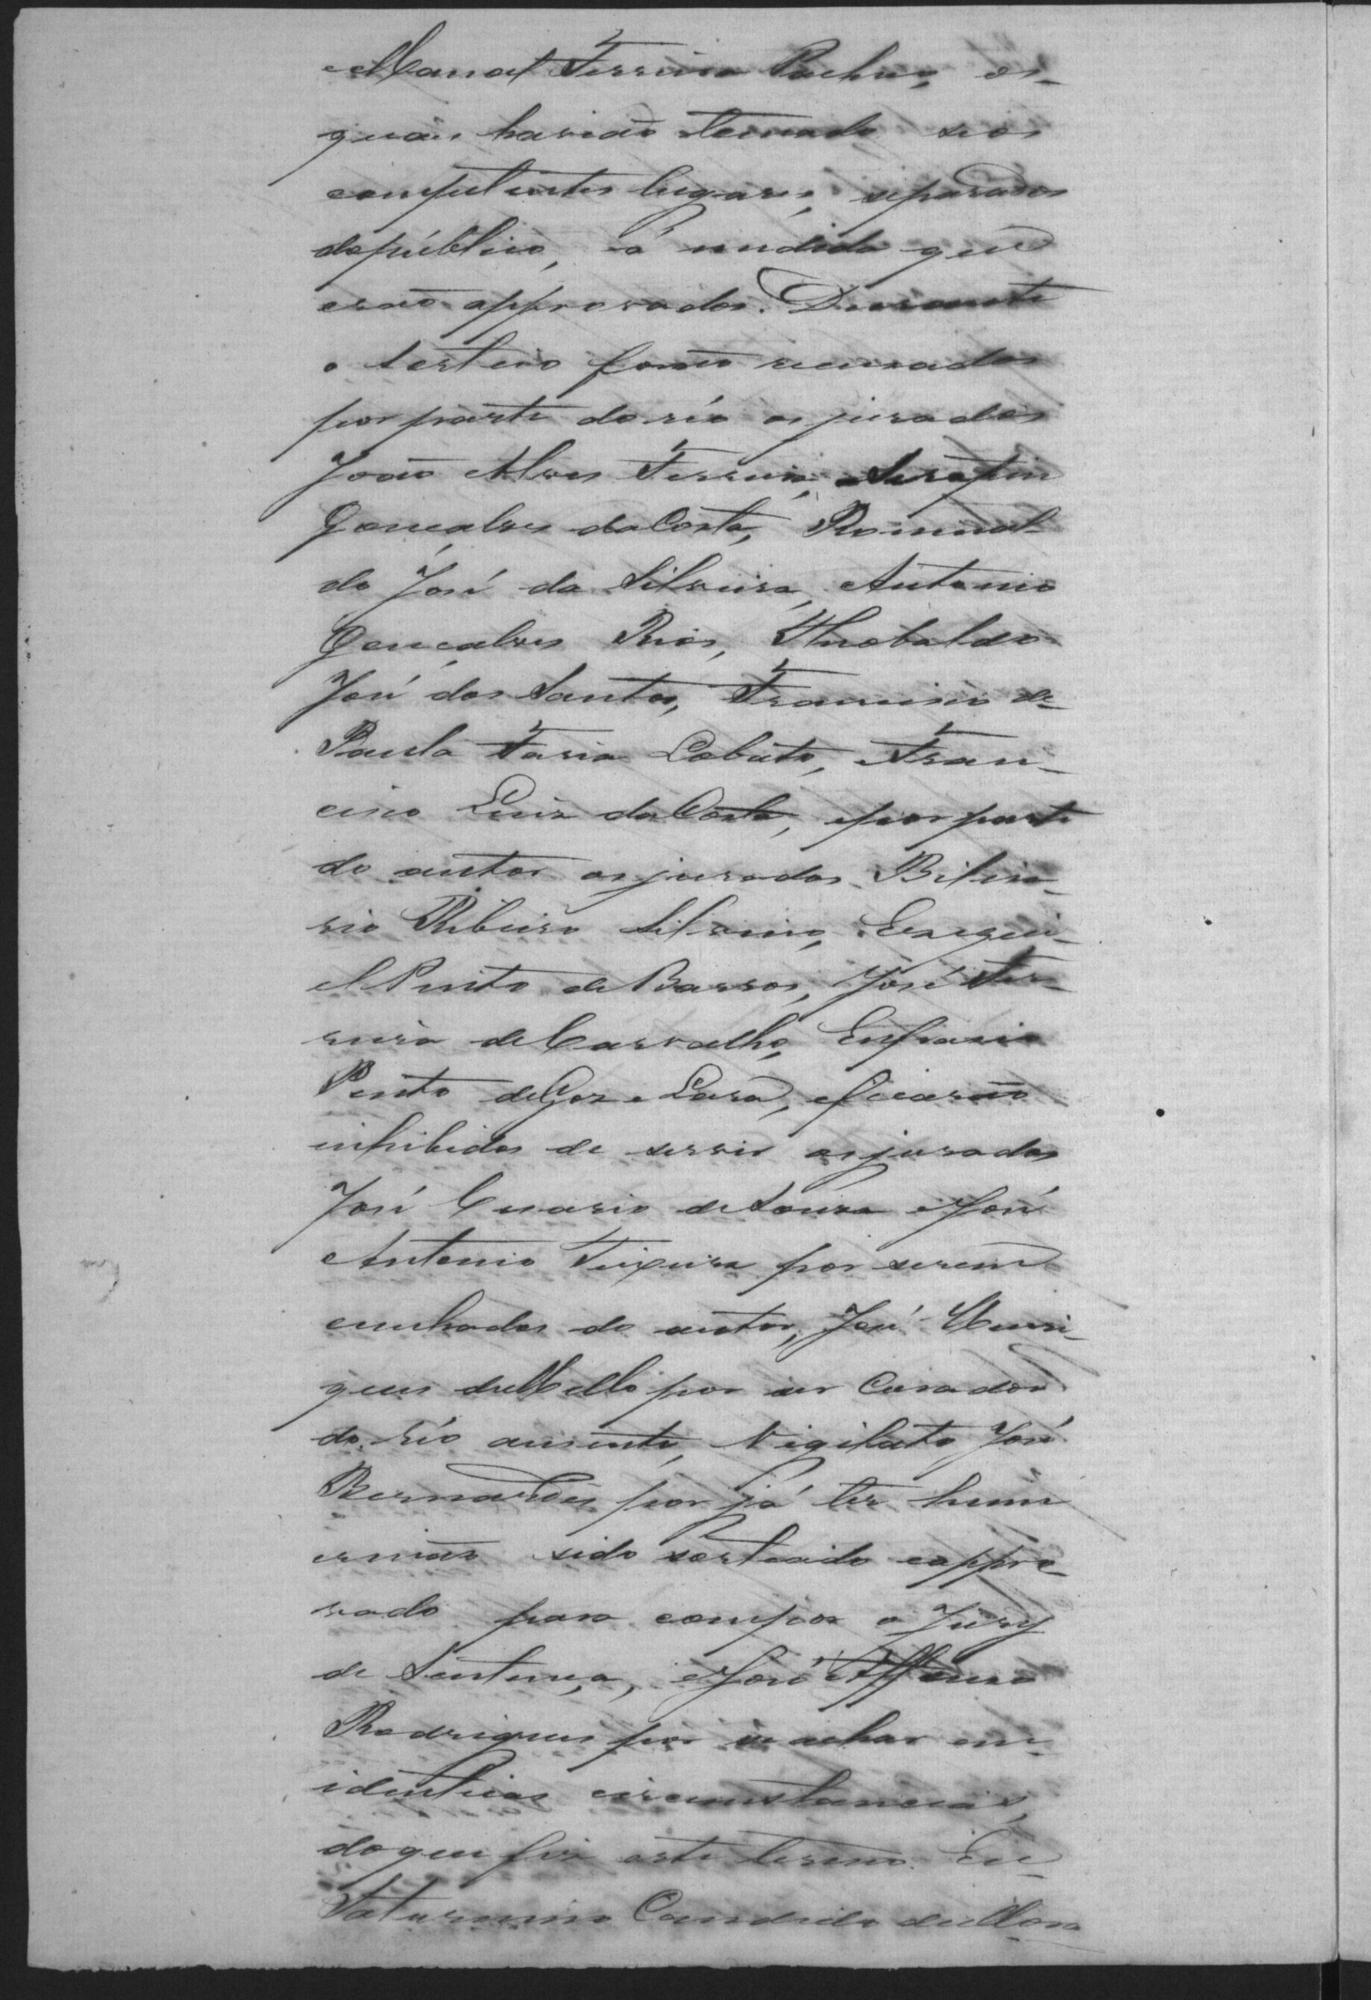 Manoel Ferreira Pacheco, os
quaes havião tomado seos
competentes lugares, separados
do público, á medida que
erão approvados. Durante
o sorteio forão recusados
por parte do réo os jurados
João Alves Ferreira, Serafim
Gonçalves da Costa, Romual-
do José da Silveira, Antonio
Gonçalves Rios, Theobaldo
José dos Santos, Francisco de
Paula Faria Lobato, Fran-
cisco Luiz da Costa, e por parte
do autor os jurados
Ribeiro Silvino, Ezequi-
el Pinto de Barros, José Fer-
reira de Carvalho, Eufrasio
Pinto de Goz e Lara, e ficarão
inhibidos de servir os jurados
José de Souza e José
Antonio Teixeira por serem
cunhados do autor, José Henri-
ques de Mello por ser Curador
do réo ausente, Vigilato José
Bernardes por já ter hum
irmão sido sorteado e appro-
vado para compor o Jury
de Sentença, e José Affonso
Rodrigues por se achar em
identicas circumstancias,
do que fiz este termo. Eu
Saturnino Candido de